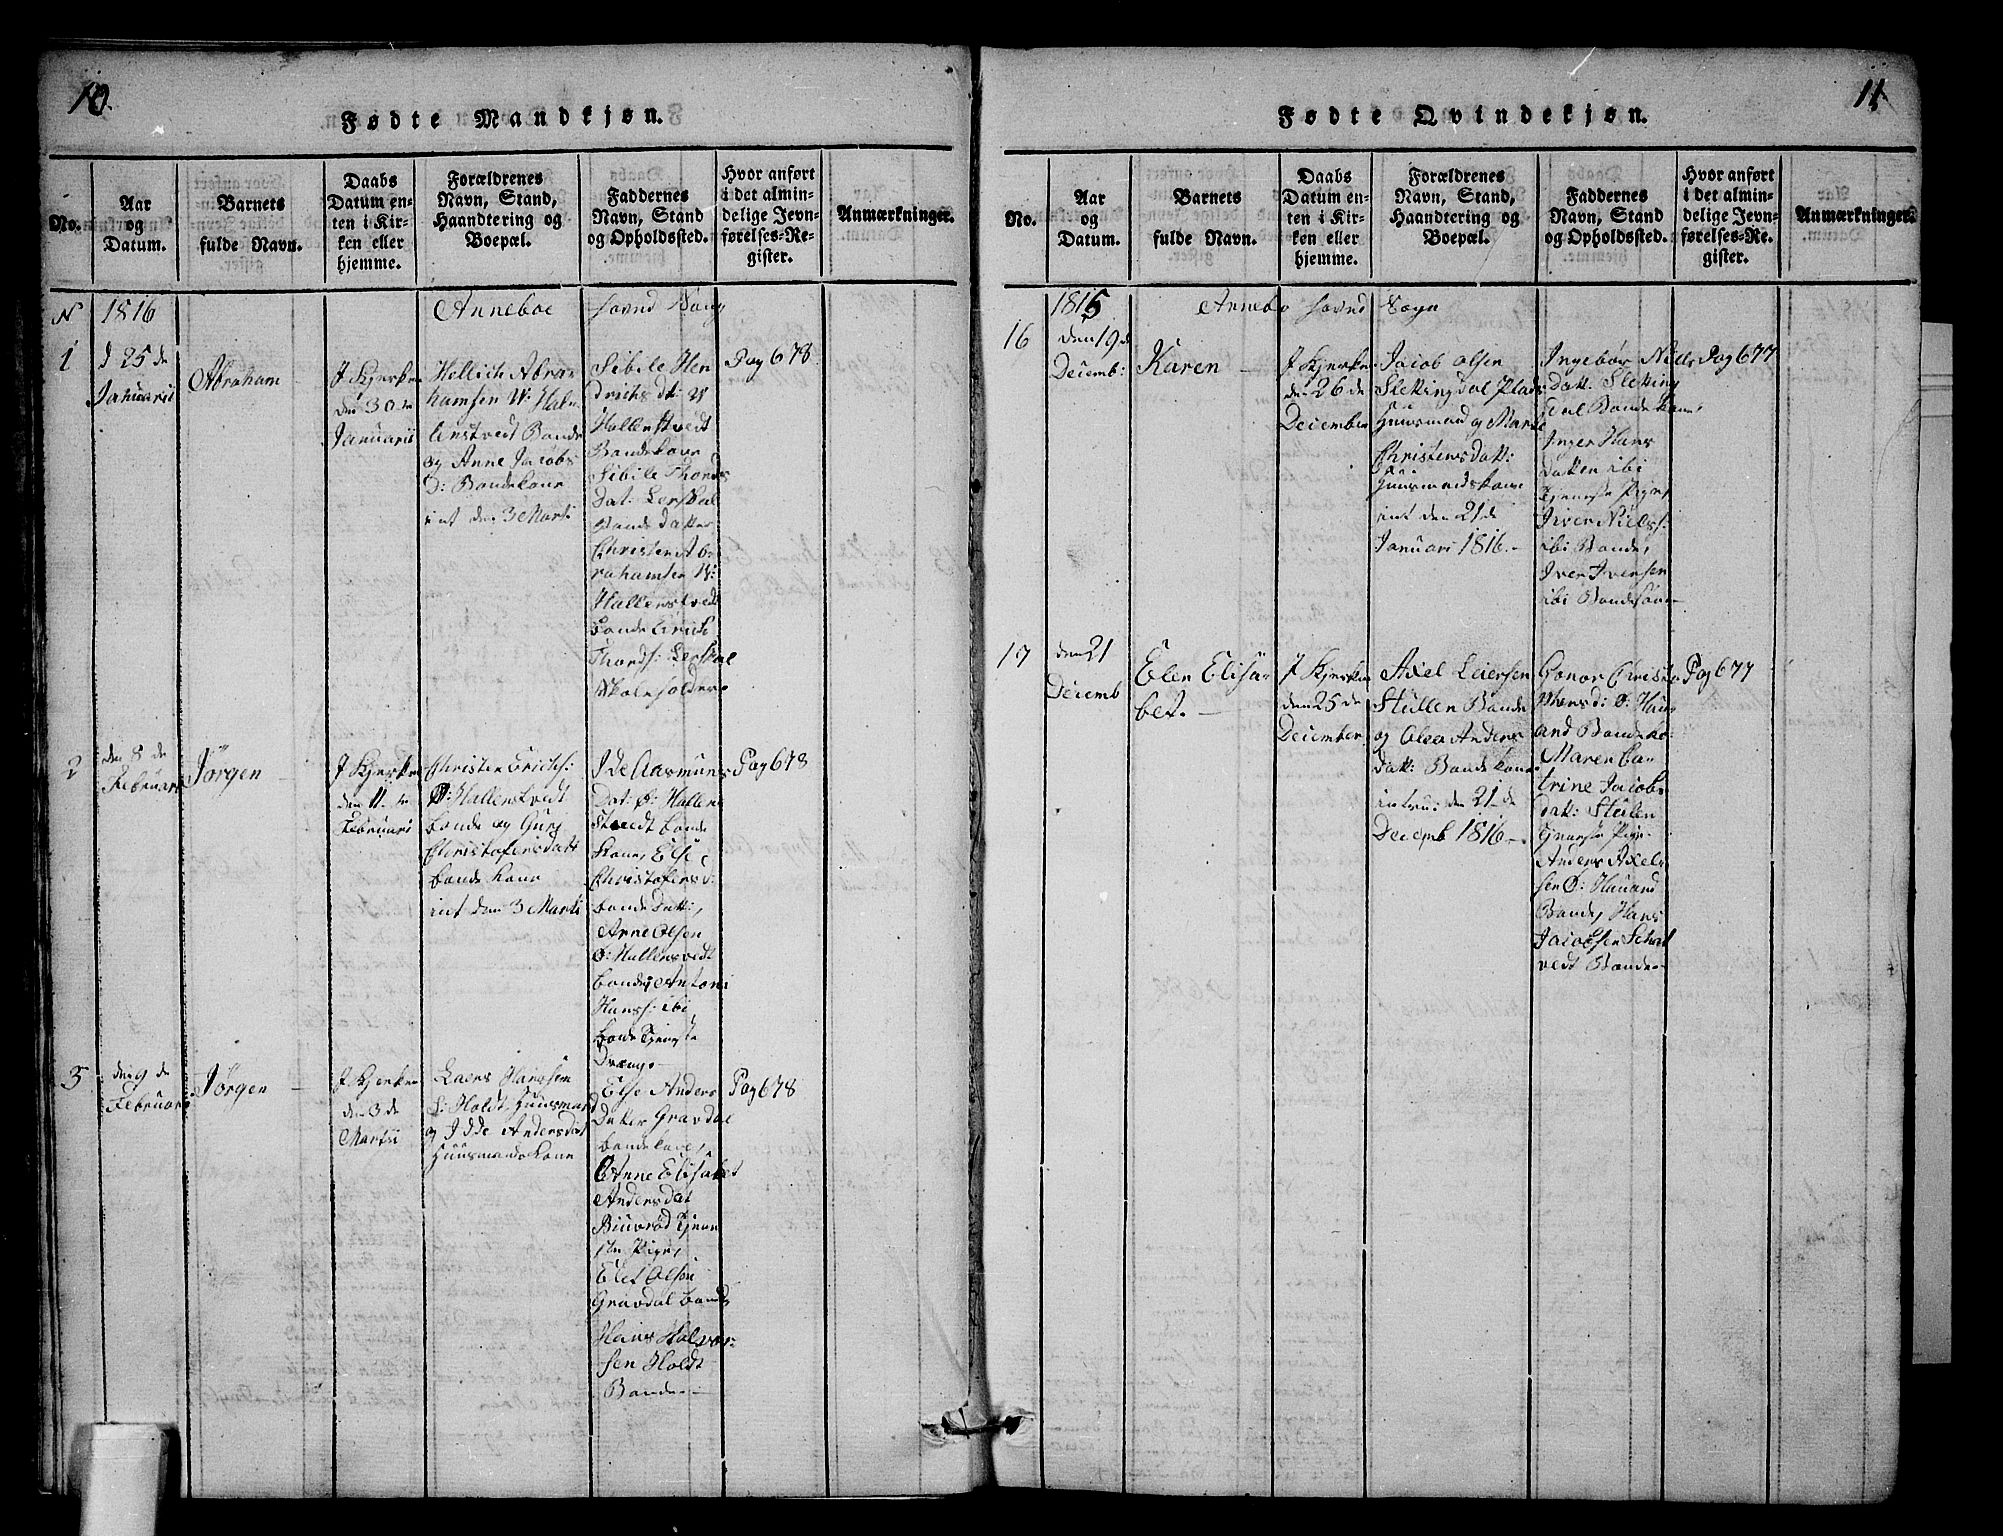 10.
Fødte Mandkjøn.
No.
Aar
og
Datum.
Barnets
fulde Navn.
Daabs
Datum en-
ten i Kir-
ken eller
hjemme.
Forældrenes
Navn, Stand,
Haandtering og
Boepæl.
Faddernes
Navn, Stand
og Opholdssted.
Hvor anført
i det almin-
delige Jevn-
førelses-Re-
gister.
Anmærkninger.
N
1816
Anneboe
1
d 25 de
Januarii
Abraham
J Kjerken
den 30 te
Januarii
Hellich Abra-
hamsen W: Hal-
lenstvedt Bonde
og Anne Jacobs
D: Bondekone
int den 3 Marti
Sibile Hen
drichs dt: W
Hallenstvedt
Bondekone
Sibile Thords
Dat: Lerskal
Bonde datter
Christen Ab-
rahamsen W:
Hallenstvedt
Bonde Erich
Thords: Lerskal
Skoleholder
Pag 678
2
den 8 de
Februari
Jörgen
J Kjerken
den 11 te
Februari
Christen Erichs:
Ø: Hallenstvedt
bonde og Gurj
Christofersdatt
bonde kone
int den 3 Marti
Ide Aasmuns
Dat: Ø: Hallen
stvedt bonde
kone, Else
Christofers d:
bonde Datt:,
Arne Olsen
Ø: Hallenstvedt
bonde, Anton
Hanss: ibi
bonde Tjenste
Dreng
Pag 678
3
den 9 de
Februari
Jörgen
J Kjerken
den 3 de
Martii
Laers Hansen
Holdt Huusmand
og Idde Andersdat
Huusmands kone
Else Anders
Dater Gravdal
bondekone,
Anne Elisabet
Andersdat
Biuvröd Tjene
ste Pige,
Elef Olsen
Gravdal bonde
Hans Halvor-
sen Holdt
Bonde
Pag 678
11.
Fødte Qvindekjøn.
No.
Aar
og
Datum.
Barnets
fulde Navn.
Daabs
Datum en-
ten i Kir-
ken eller
hjemme.
Forældrenes
Navn, Stand,
Haandtering og
Boepæl.
Faddernes
Navn, Stand
og Opholdssted.
Hvor anført
i det almin-
delige Jevn-
førelses-Re-
gister.
Anmærkninger.
1815
Annebo Sogn
16
den 19 de
Decemb:
Karen
J Kjerken
den 26 de
December
Jacob Olsen
Slettingdal Plads
Huusmand og Marte
Christensdatt:
Huusmandskone
int den 21 de
Januari 1816.
Ingebör Niels
Datt: Sletting
dal Bondekone,
Inger Hans
Datter ibi
Tjeneste Pige,
Iver Nielss:
ibi Bonde,
Iver Iversen
ibi Bondesøn
Pag 677
17
den 21
Decemb
Elen Elisa-
bet.
J Kjerken
den 25 de
December
Axel Leiersen
Stüllen Bonde
og Olea Anders
datt: Bonde kone
intru: den 21 de
Decemb 1816.
Gonor Christo
phersd: Ø: Hau
and Bondeko:
Maren Ca-
trine Jacobs
Datt: Stülen
Tjeneste Pige
Anders Axel-
sen Ø: Hauand
Bonde, Hans
Jacobsen
vedt Bonde
Pag 677